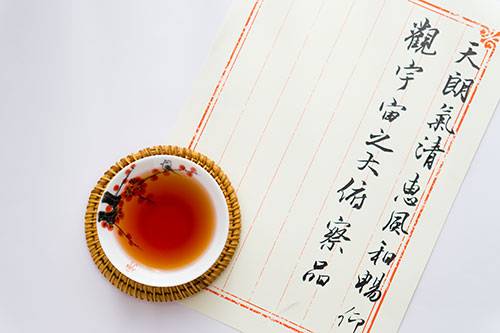 天朗氣清惠風和暢仰
觀宇宙之大俯察品